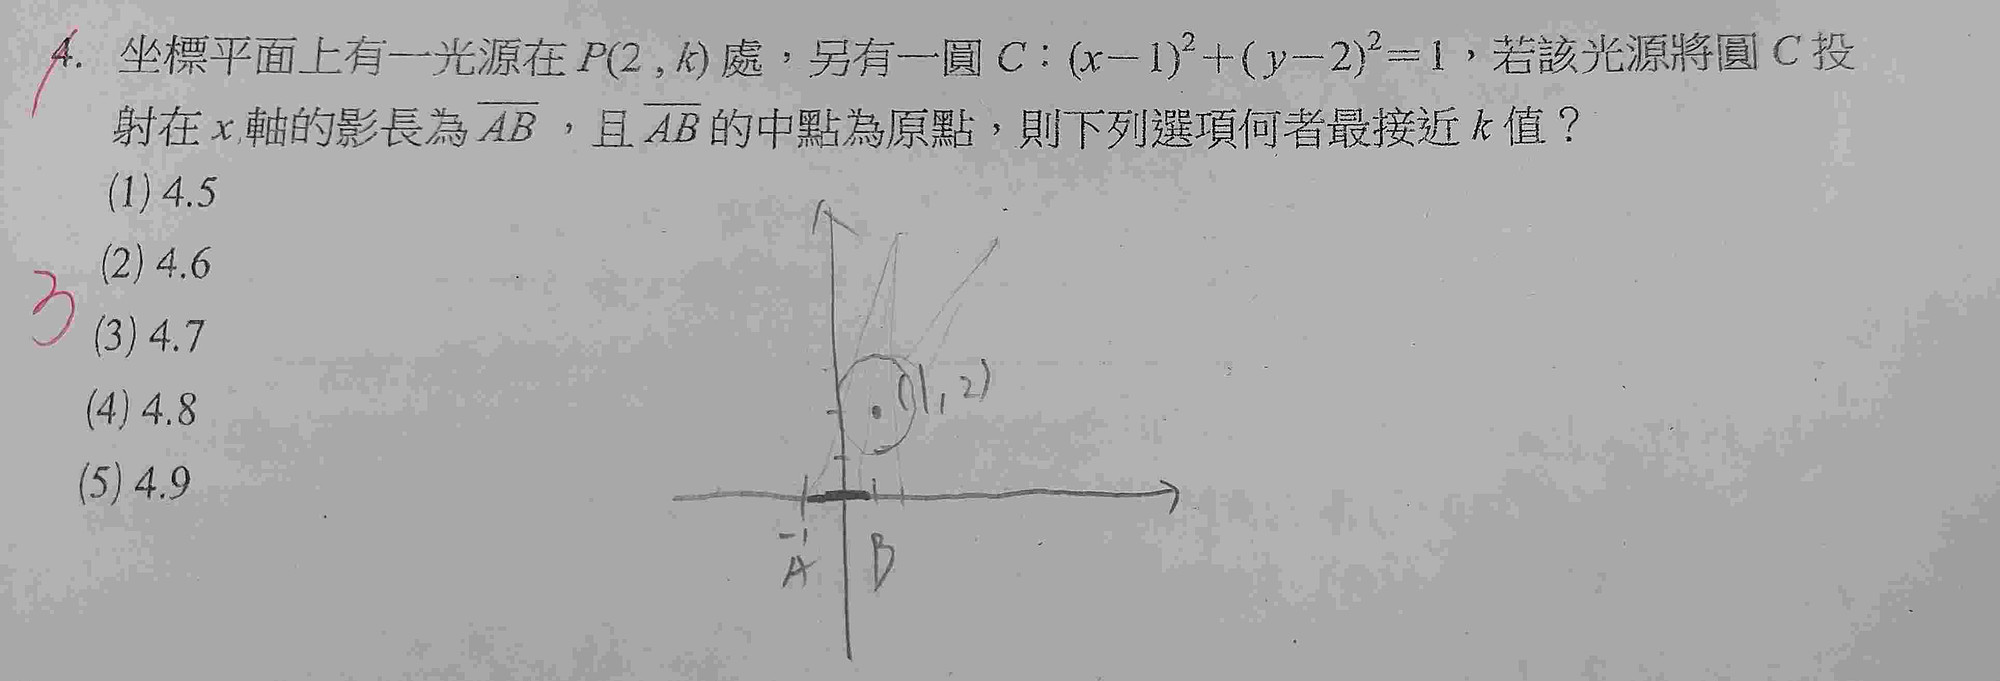 4. 坐標平面上有一光源在 P(2 , k) 處，另有一圓 C：(x−1)²+(y−2)²=1，若該光源將圓 C 投
射在 x 軸的影長為 AB ，且 AB 的中點為原點，則下列選項何者最接近 k 值？
(1) 4.5
(2) 4.6
3
(3) 4.7
(4) 4.8
(5) 4.9
(1,2)
-1
A B